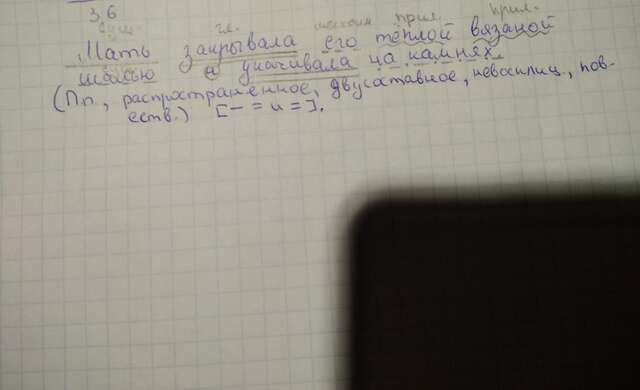 36
сущ. гл. местоим прил. прил.
Мать закрывала его тёплой вязаной
шалью и укачивала на камнях.
(Пп, распространённое, двусоставное, невосклиц., пов-
еств.) [– = и =].